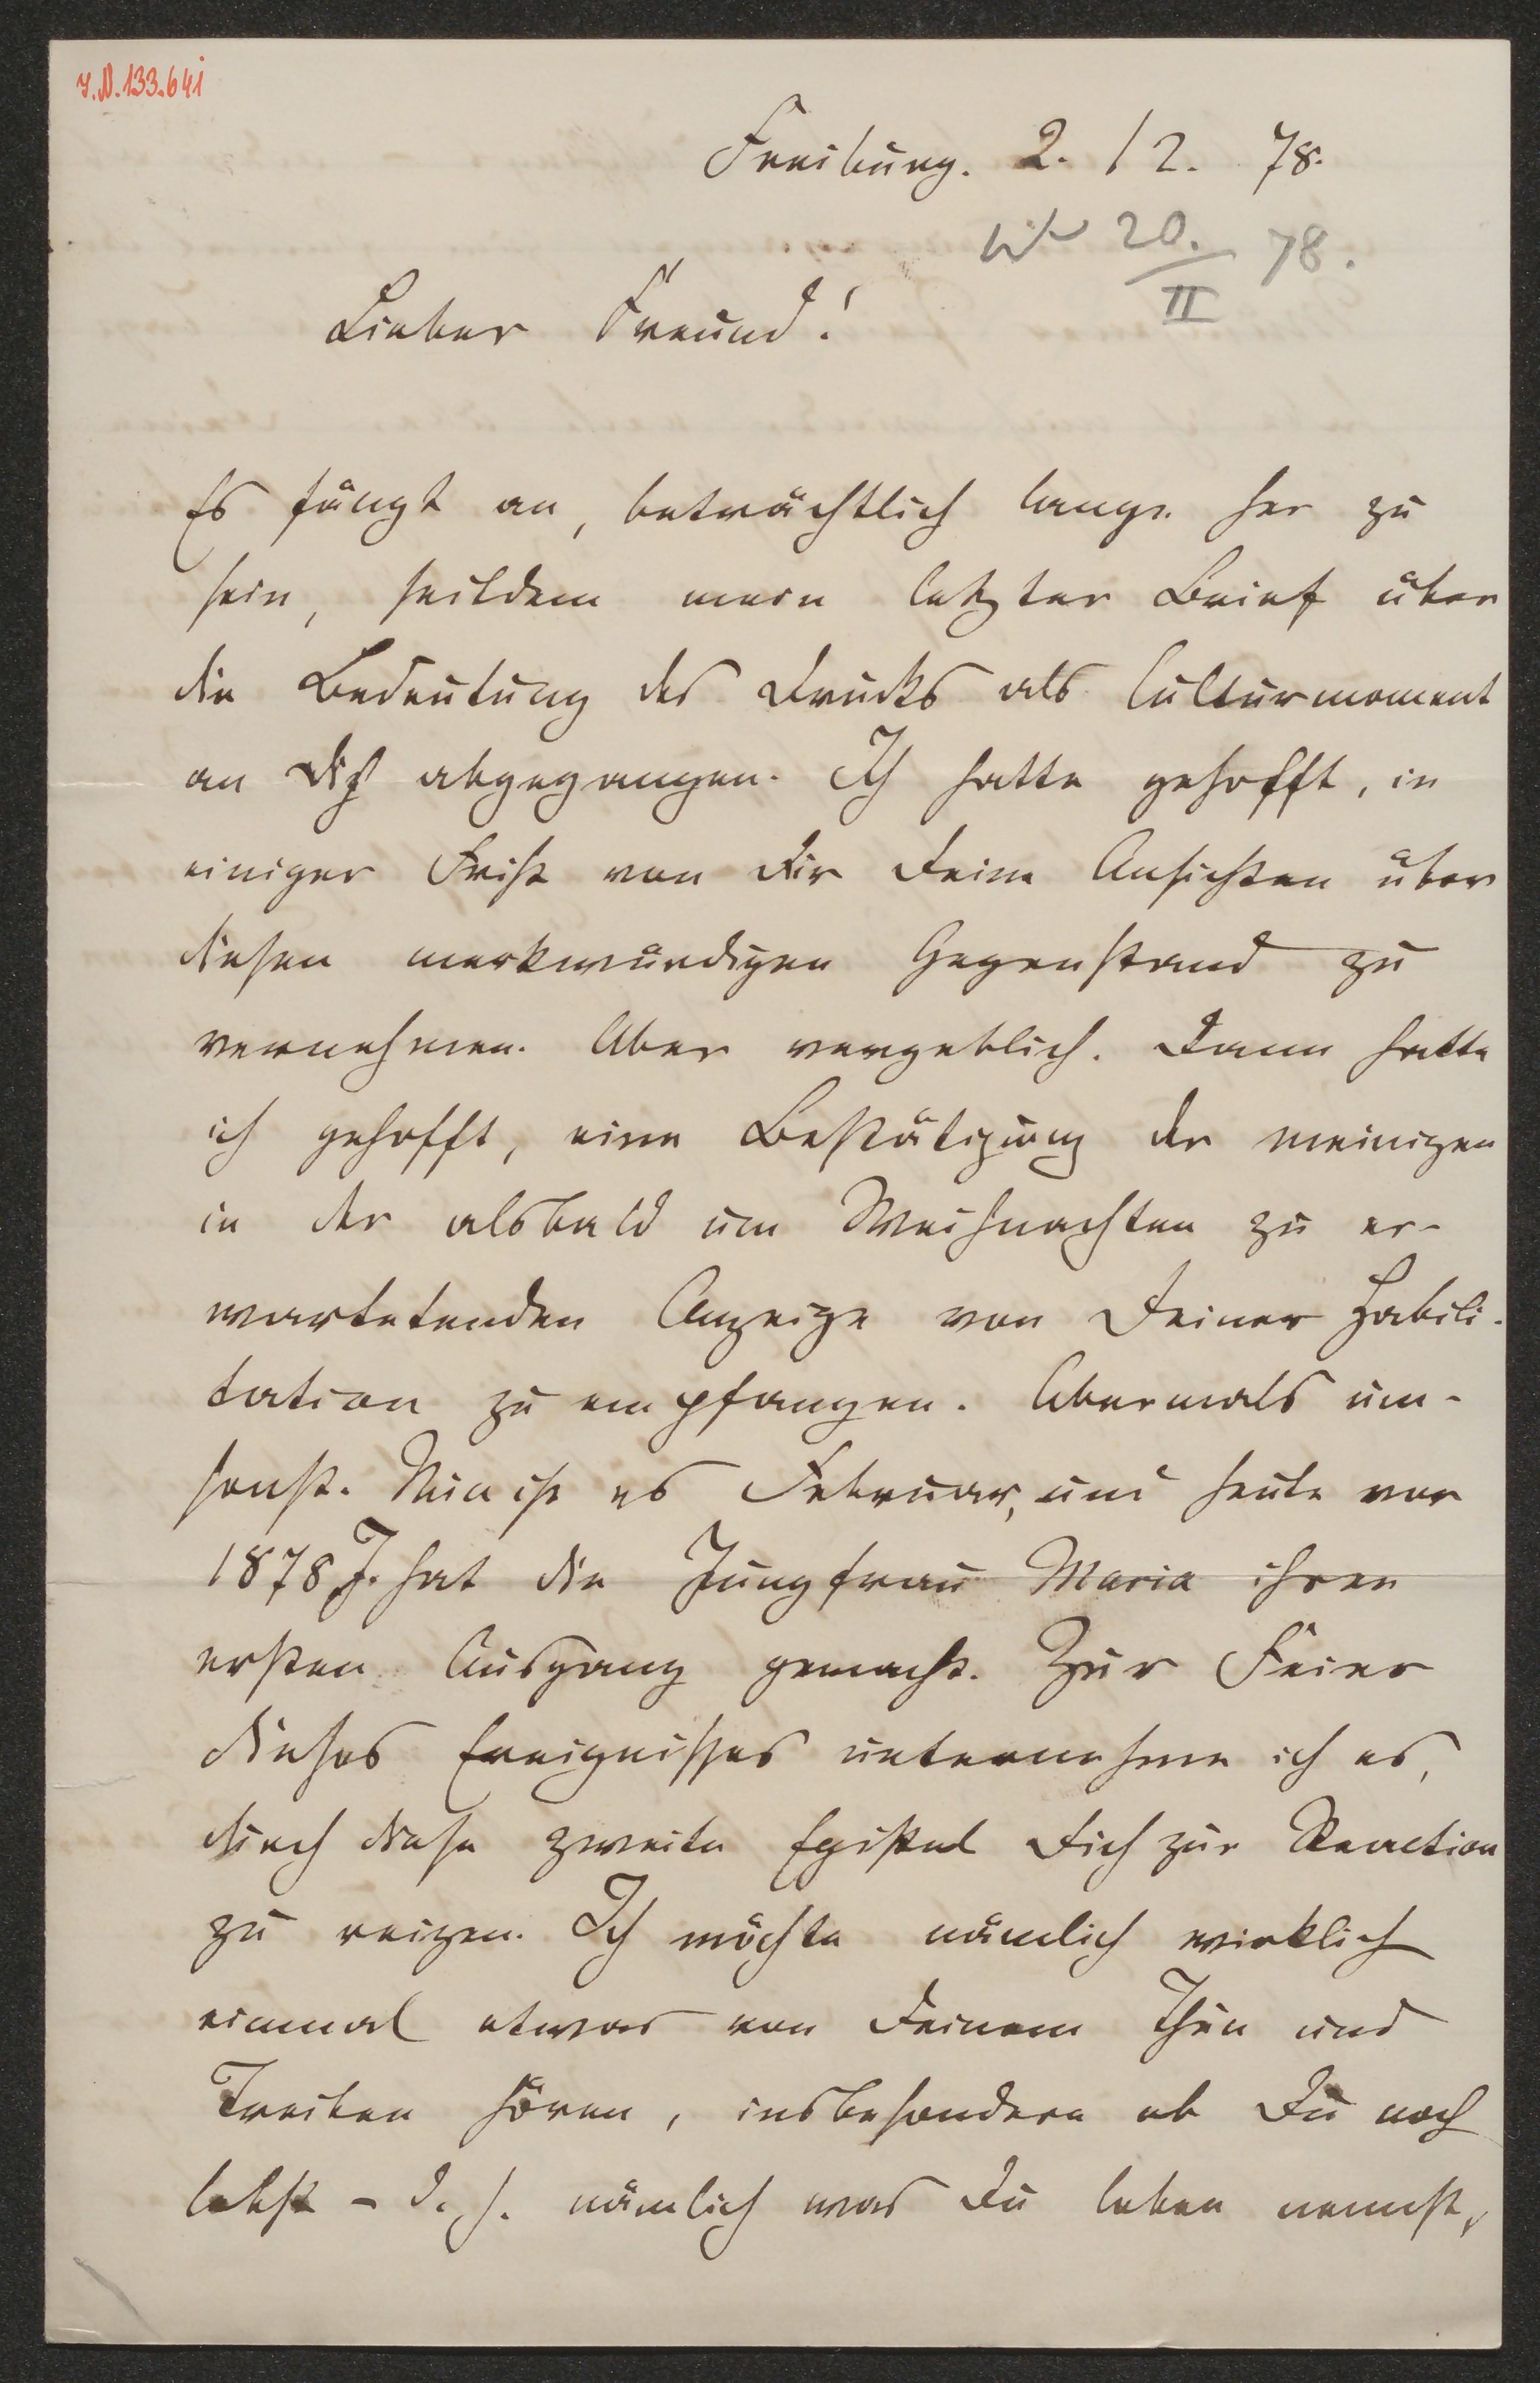 I.N. 133.641
Freiburg. 2. /2. 78.
20./II 78.
Lieber Freund!
Es fängt an, beträchtlich lange her zu
sein, seitdem mein letzter Brief über
die Bedeutung des Drucks als Culturmoment
an Dich abgegangen. Ich hatte gehofft, in
einiger Frist von Dir Deine Ansichten über
diesen merkwürdigen Gegenstand zu
vernehmen. Aber vergeblich. Dann hatte
ich gehofft, eine Bestätigung der meinigen
in der alsbald um Weihnachten zu er-
wartetenden Anzeige von Deiner Habili-
tation zu empfangen. Abermals um-
sonst. Nun ist es Februar, und heute vor
1878 J. hat die Jungfrau Maria ihren
ersten Ausgang gemacht. Zur Feier
dieses Ereignisses unternehme ich es,
durch diese zweite Epistel Dich zur Reaction
zu reizen. Ich möchte nämlich wirklich
einmal etwas von Deinem Thun und
Treiben hören, insbesondere ob Du noch
lebst - d. h. nämlich was Du leben nennst,